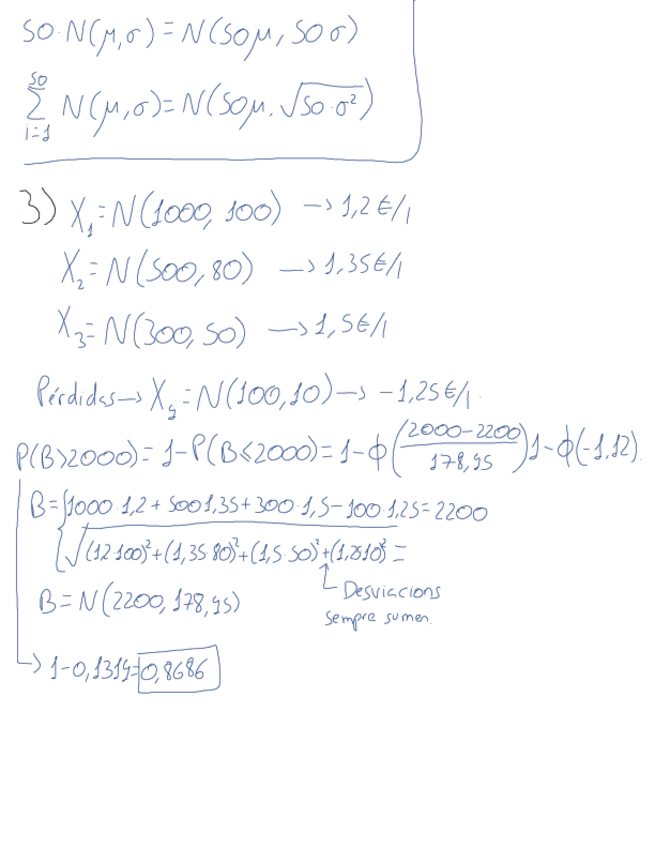 50·N(μ,σ)=N(50μ, 50σ)
50
∑ N(μ,σ)=N(50μ, √50·σ²)
i=1
3) X₁=N(1000, 100) → 1,2€/l
X₂=N(500,80) → 1,35€/l
X₃=N(300,50) → 1,5€/l
Pérdidas → X₄=N(100,10) → -1,25€/l
P(B>2000)=1-P(B≤2000)=1-ϕ(2000-2200/178,95)1-ϕ(-1,12)
B={1000·1,2+500·1,35+300·1,5-100·1,25=2200
√(1,2·100)²+(1,35·80)²+(1,5·50)²+(1,25·10)² =
B=N(2200,178,95)
Desviacions
sempre sumen.
→ 1-0,1314=0,8686